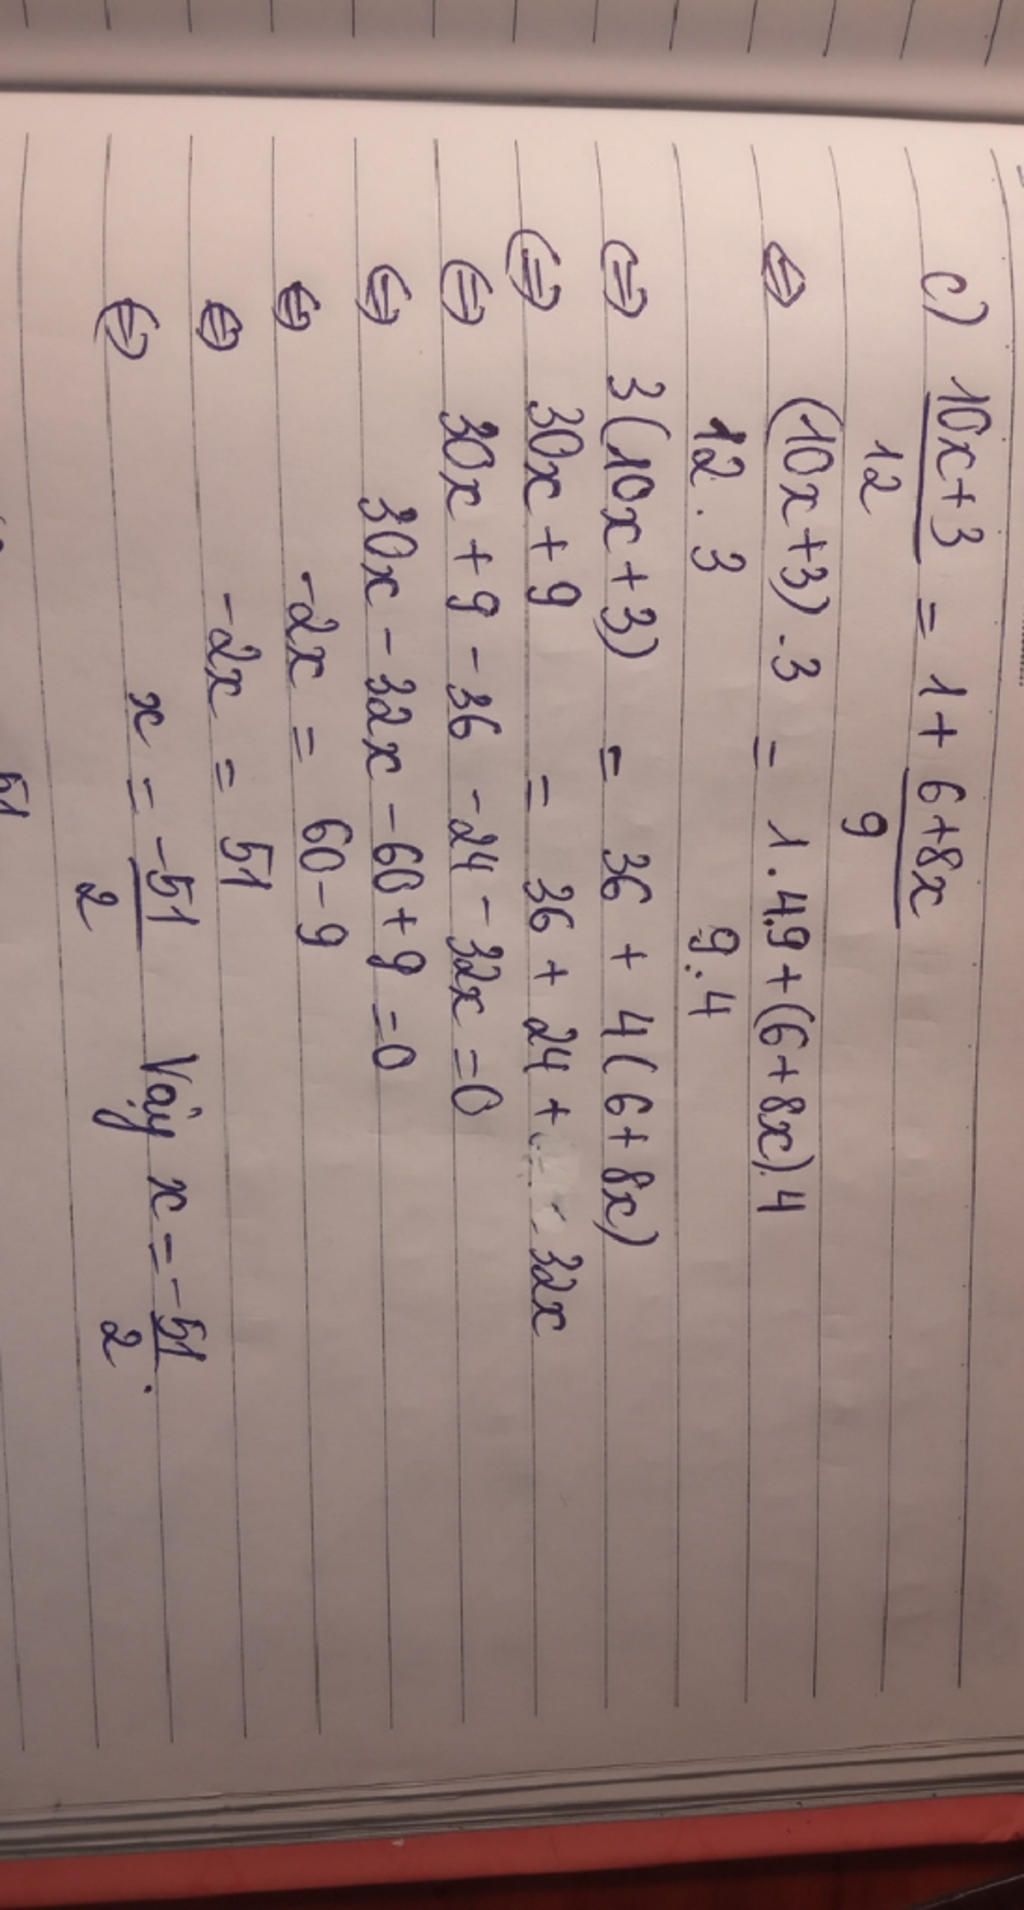 c) 10x+3 = 1 + 6+8x
12 9
⇔ (10x+3).3 = 1.4.9+(6+8x).4
12.3 9.4
⇔ 3(10x+3) = 36 + 4(6+8x)
⇔ 30x+9 = 36 + 24 + 32x
⇔ 30x+9-36-24-32x=0
⇔ 30x-32x-60+9=0
⇔ -2x = 60-9
⇔ -2x = 51
⇔ x = -51 Vậy x = -51.
2 2
51